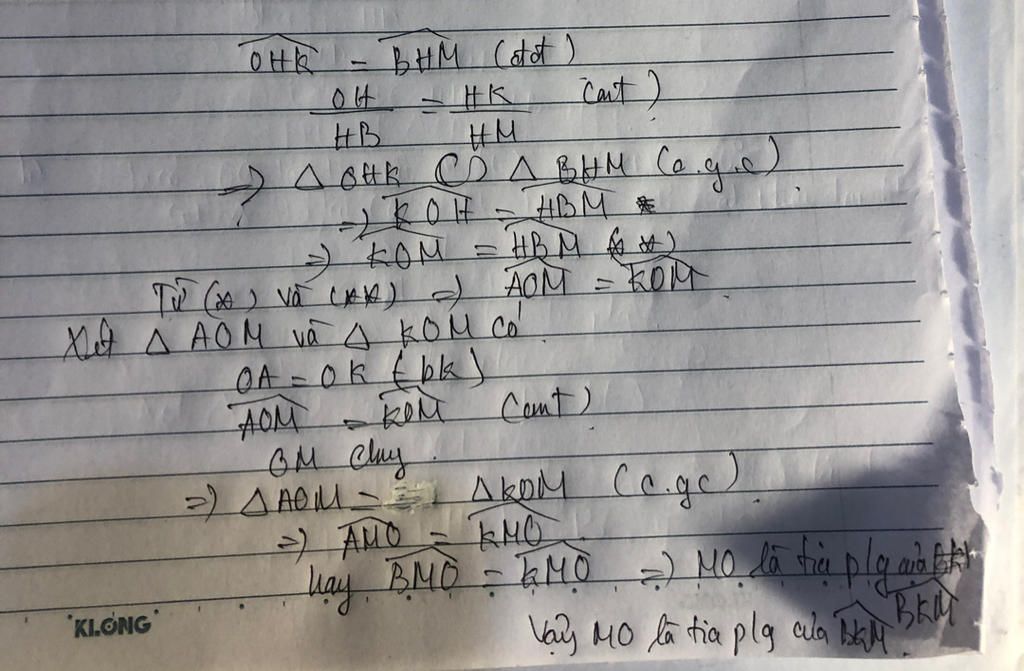 OHK = BHM (đđ)
OH/HB = HK/HM (cmt)
=> Δ OHK ∽ Δ BHM (c.g.c)
=> KOH = HBM *
=> KOM = HBM (**)
Từ (*) và (**) => AOM = KOM
Xét Δ AOM và Δ KOM có
OA = OK (bk)
AOM = KOM (cmt)
OM chung
=> Δ AOM = Δ KOM (c.gc)
=> AMO = KMO
hay BMO = KMO => MO là tia p/g của BKM
KLONG
Vậy MO là tia p/g của BKM